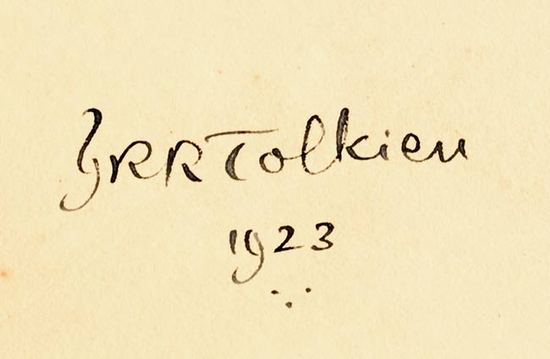 JRRTolkien
1923